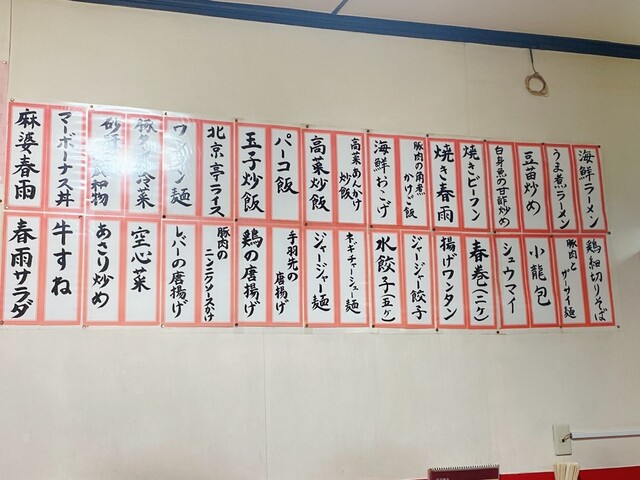 海鮮ラーメン
うま煮ラーメン
豆苗炒め
白身魚の甘酢炒め
焼きビーフン
焼き春雨
豚肉の角煮かけご飯
海鮮おこげ
高菜あんかけ炒飯
高菜炒飯
パーコ飯
玉子炒飯
北京亭ライス
ワンタン麺
麻婆春雨
マーボーナス丼
鶏細切りそば
豚肉とザーサイ麺
小龍包
シュウマイ
春巻(二ケ)
揚げワンタン
ジャージャー餃子
水餃子(五ケ)
ネギチャーシュー麺
ジャージャー麺
手羽先の唐揚げ
鶏の唐揚げ
豚肉のニンニクソースかけ
レバーの唐揚げ
空心菜
あさり炒め
牛すね
春雨サラダ